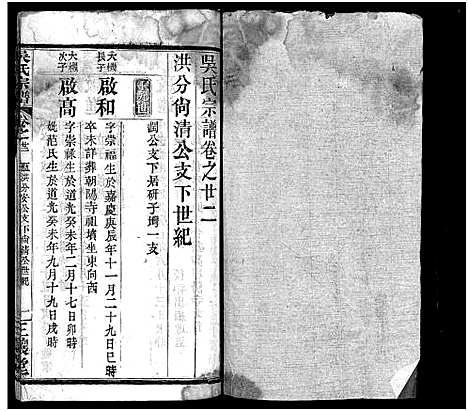 吳氏宗譜卷之廿二
洪分尙清公支下世紀
潤公支下居研子塆一支
大機長子
啟和
字崇福生於嘉慶庚辰年十一月二十九日巳時
卒未詳葬朝陽寺祖塋坐東向西
大機次子
啟高
字崇祿生於道光癸未年二月十七日卯時
娶范氏生於道光癸未年九月十九日戌時
吳氏宗譜
卷之廿二
三讓堂